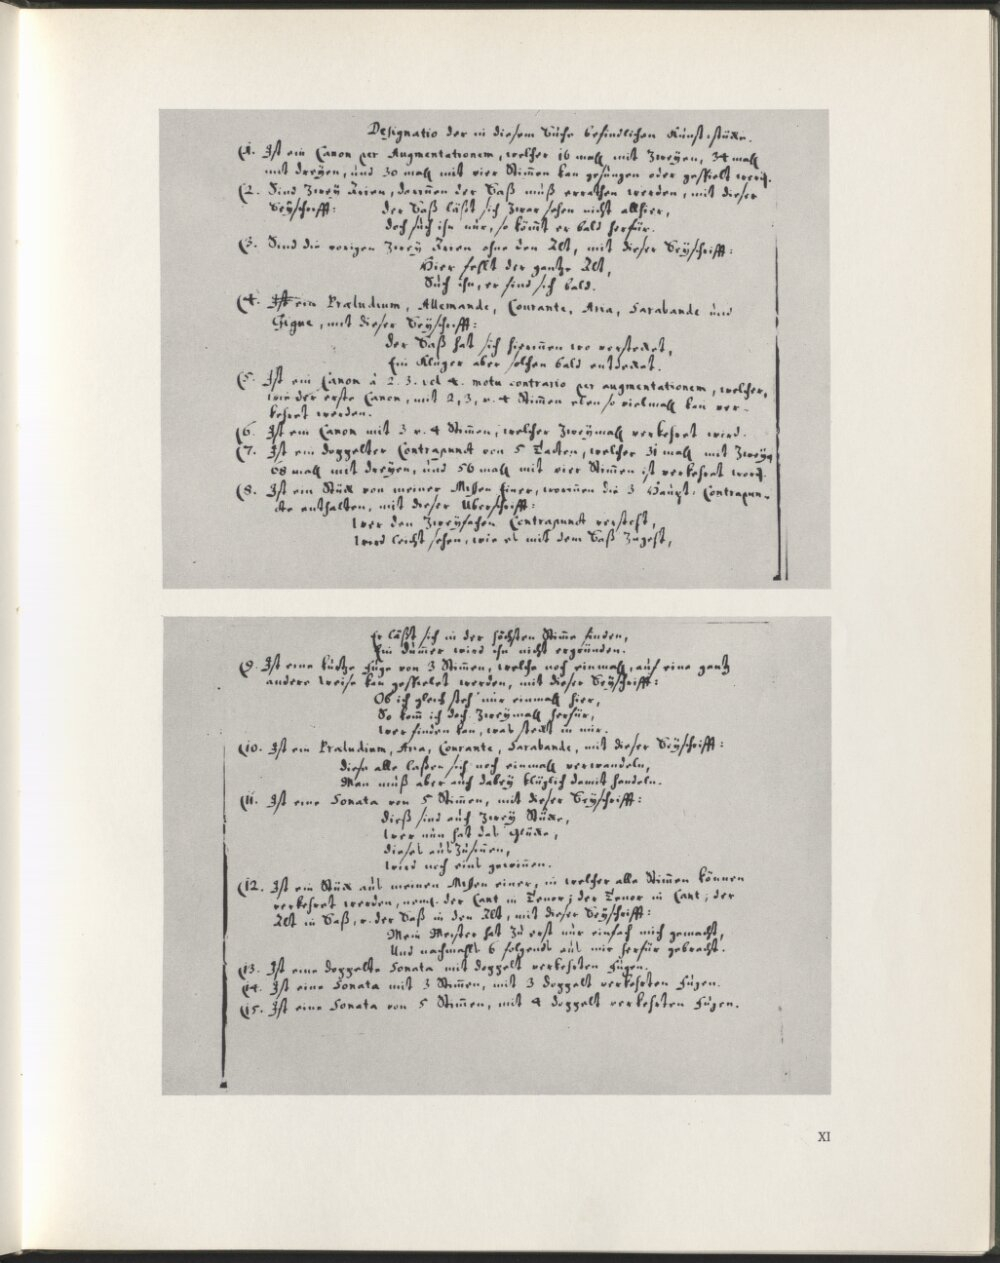 Designatio der in diesem Buche befindlichen Kunst-stücke.
(1. Ist ein Canon per Augmentationem, welcher 16 mahl mit Zweÿen, 34 mahl
mit dreÿen, und 30 mahl mit vier Stimmen kan gesungen oder gespielt werd.
(2. Sind Zweÿ Arien, darinnen der Baß muß errathen werden, mit dieser
Beÿschrifft: der Baß läßt sich Zwar sehen nicht allhier,
doch such ihn nur, so kömt er bald herfür.
(3. Sind die vorigen Zweÿ Arien ohne den Alt, mit dieser Beÿschrifft:
Hier fehlt der gantze Alt,
Such ihn, er find sich bald.
(4. Ist ein Præludium, Allemande, Courante, Aria, Sarabande und
Gigue, mit dieser Beÿschrifft:
der Baß hat sich hierinnen wo verstecket,
Ein Kluger aber solchen bald entdecket.
(5. Ist ein Canon à 2. 3. vel 4. motu contrario per augmentationem, welcher,
wie der erste Canon, mit 2, 3, v. 4 Stimen eben so vielmahl kan ver-
kehret werden.
(6. Ist ein Canon mit 3 v. 4 Stimen, welcher Zweÿmahl verkehret wird.
(7. Ist ein doppelter Contrapunct von 5 Tacten, welcher 31 mahl mit Zweÿn
68 mahl mit dreÿen, und 56 mahl mit vier Stimen ist verkehret word.
(8. Ist ein Stück von meiner Missen Einer, worinnen die 3 Haupt-Contrapun-
cte enthalten, mit dieser Überschrifft:
Wer den Zweÿfachen Contrapunct versteht,
Wird leicht sehen, wie es mit dem Baß Zugeht,
Er läßt sich in der höchsten Stime finden,
Ein dummer wird ihn nicht ergründen.
(9. Ist eine kurtze Fuge von 3 Stimen, welche noch einmahl, auf eine gantz
andere Weise kan gespielet werden, mit dieser Beÿschrifft:
Ob ich gleich steh' nur einmahl hier,
So kom ich doch Zweÿmahl herfür,
Wer finden kan, was steckt in mir.
(10. Ist ein Præludium, Aria, Courante, Sarabande, mit dieser Beÿschrifft:
diese alle laßen sich noch einmahl verwandeln,
Man muß aber auch dabeÿ klüglich damit handeln.
(11. Ist eine Sonata von 5 Stimen, mit dieser Beÿschrifft:
dieß sind auch Zweÿ Stücke,
Wer nun hat das Glücke,
dieses auszusinnen,
Wird noch eins gewinnen.
(12. Ist ein Stück aus meinen Missen einer, in welcher alle Stimen können
verkehret werden, neml. der Cant in Tenor; der Tenor in Cant; der
Alt in Baß, v. der Baß in den Alt, mit dieser Beÿschrifft:
Mein Meister hat Zu erst nur einfach mich gemacht,
Und nachmahls 6 folgends aus mir herfür gebracht.
(13. Ist eine doppelte Sonata mit doppelt verkehrten Fugen.
(14. Ist eine Sonata mit 3 Stimen, mit 3 doppelt verkehrten Fugen.
(15. Ist eine Sonata von 5 Stimen, mit 4 doppelt verkehrten Fugen.
XI